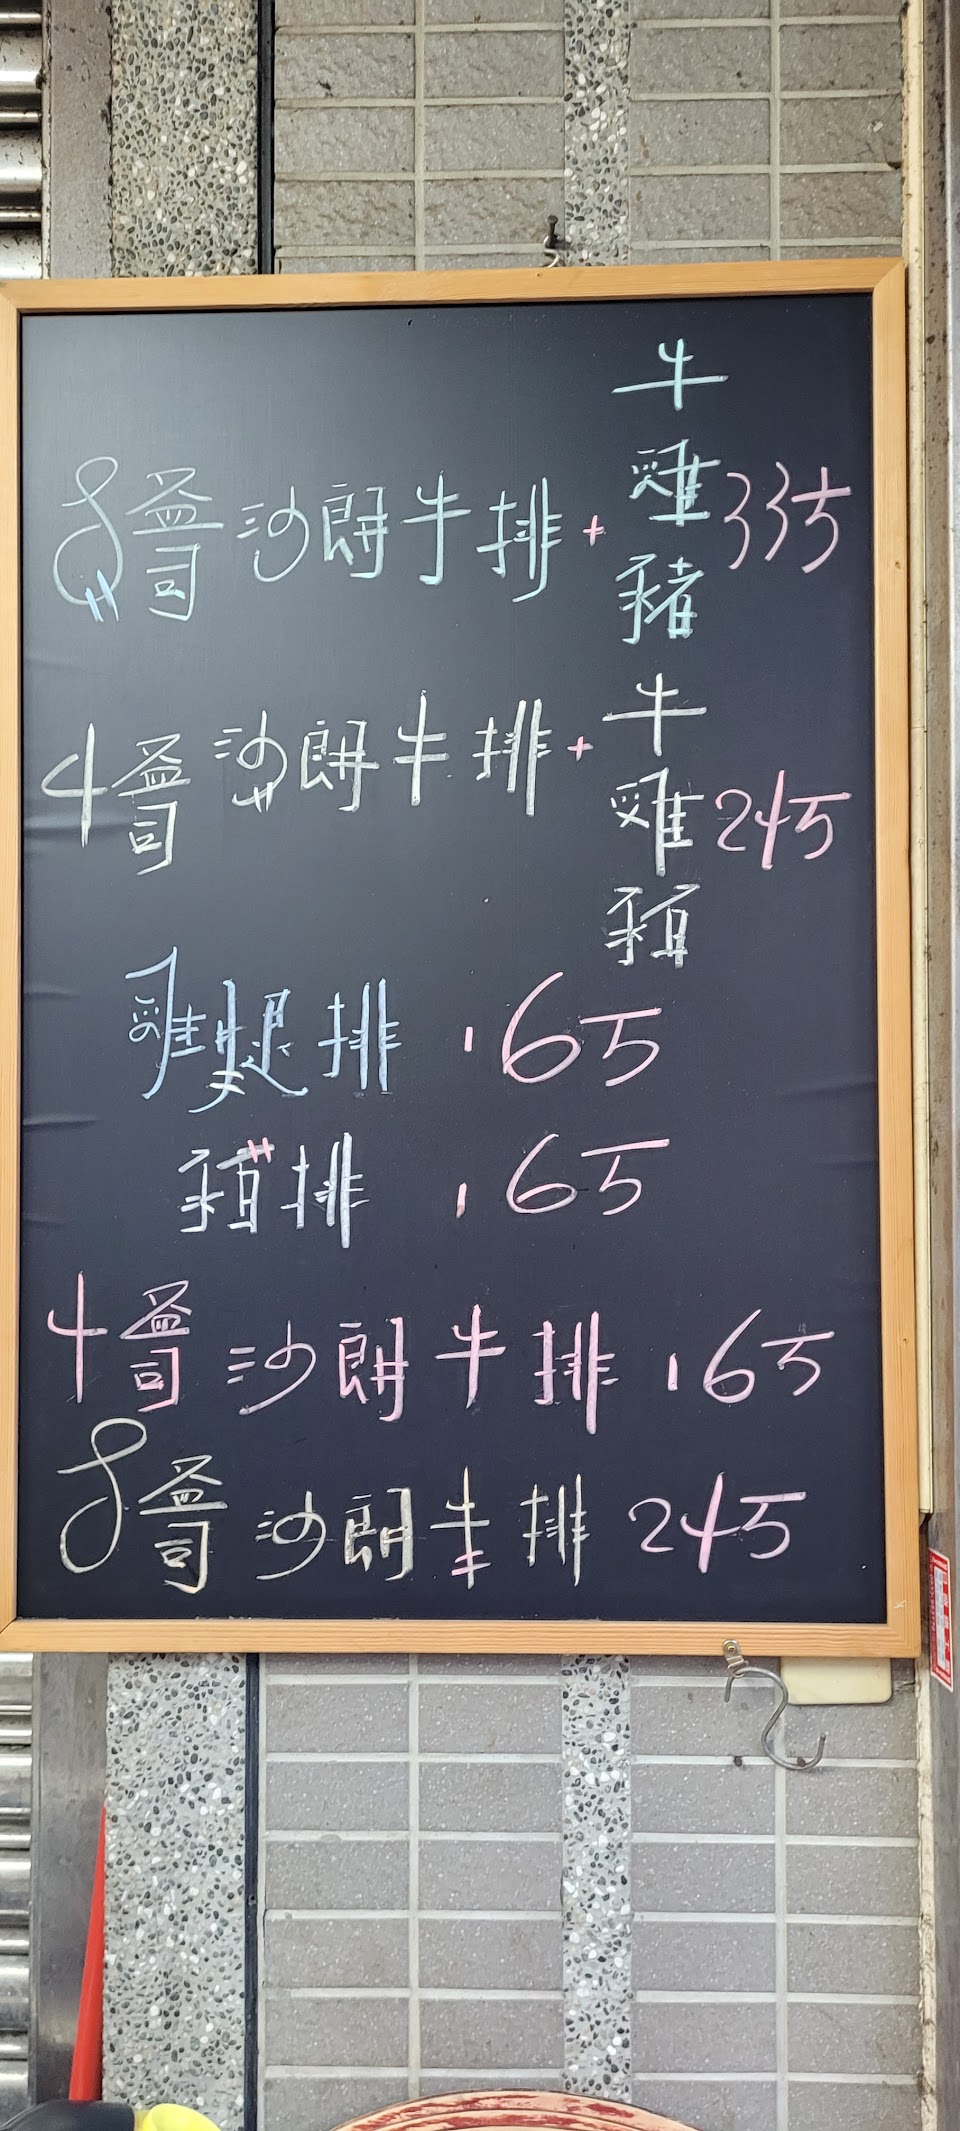 8盎司沙朗牛排+牛雞豬335
4盎司沙朗牛排+牛雞豬245
雞腿排165
豬排165
4盎司沙朗牛排165
8盎司沙朗牛排245